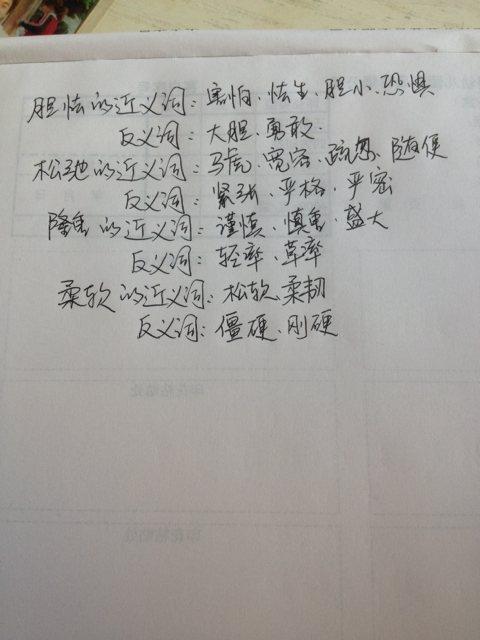 胆怯的近义词:害怕、怯生、胆小、恐惧
反义词:大胆、勇敢
松弛的近义词:马虎、宽容、疏忽、随便
反义词:紧张、严格、严密
隆重的近义词:谨慎、慎重、盛大
反义词:轻率、草率
柔软的近义词:松软、柔韧
反义词:僵硬、刚硬